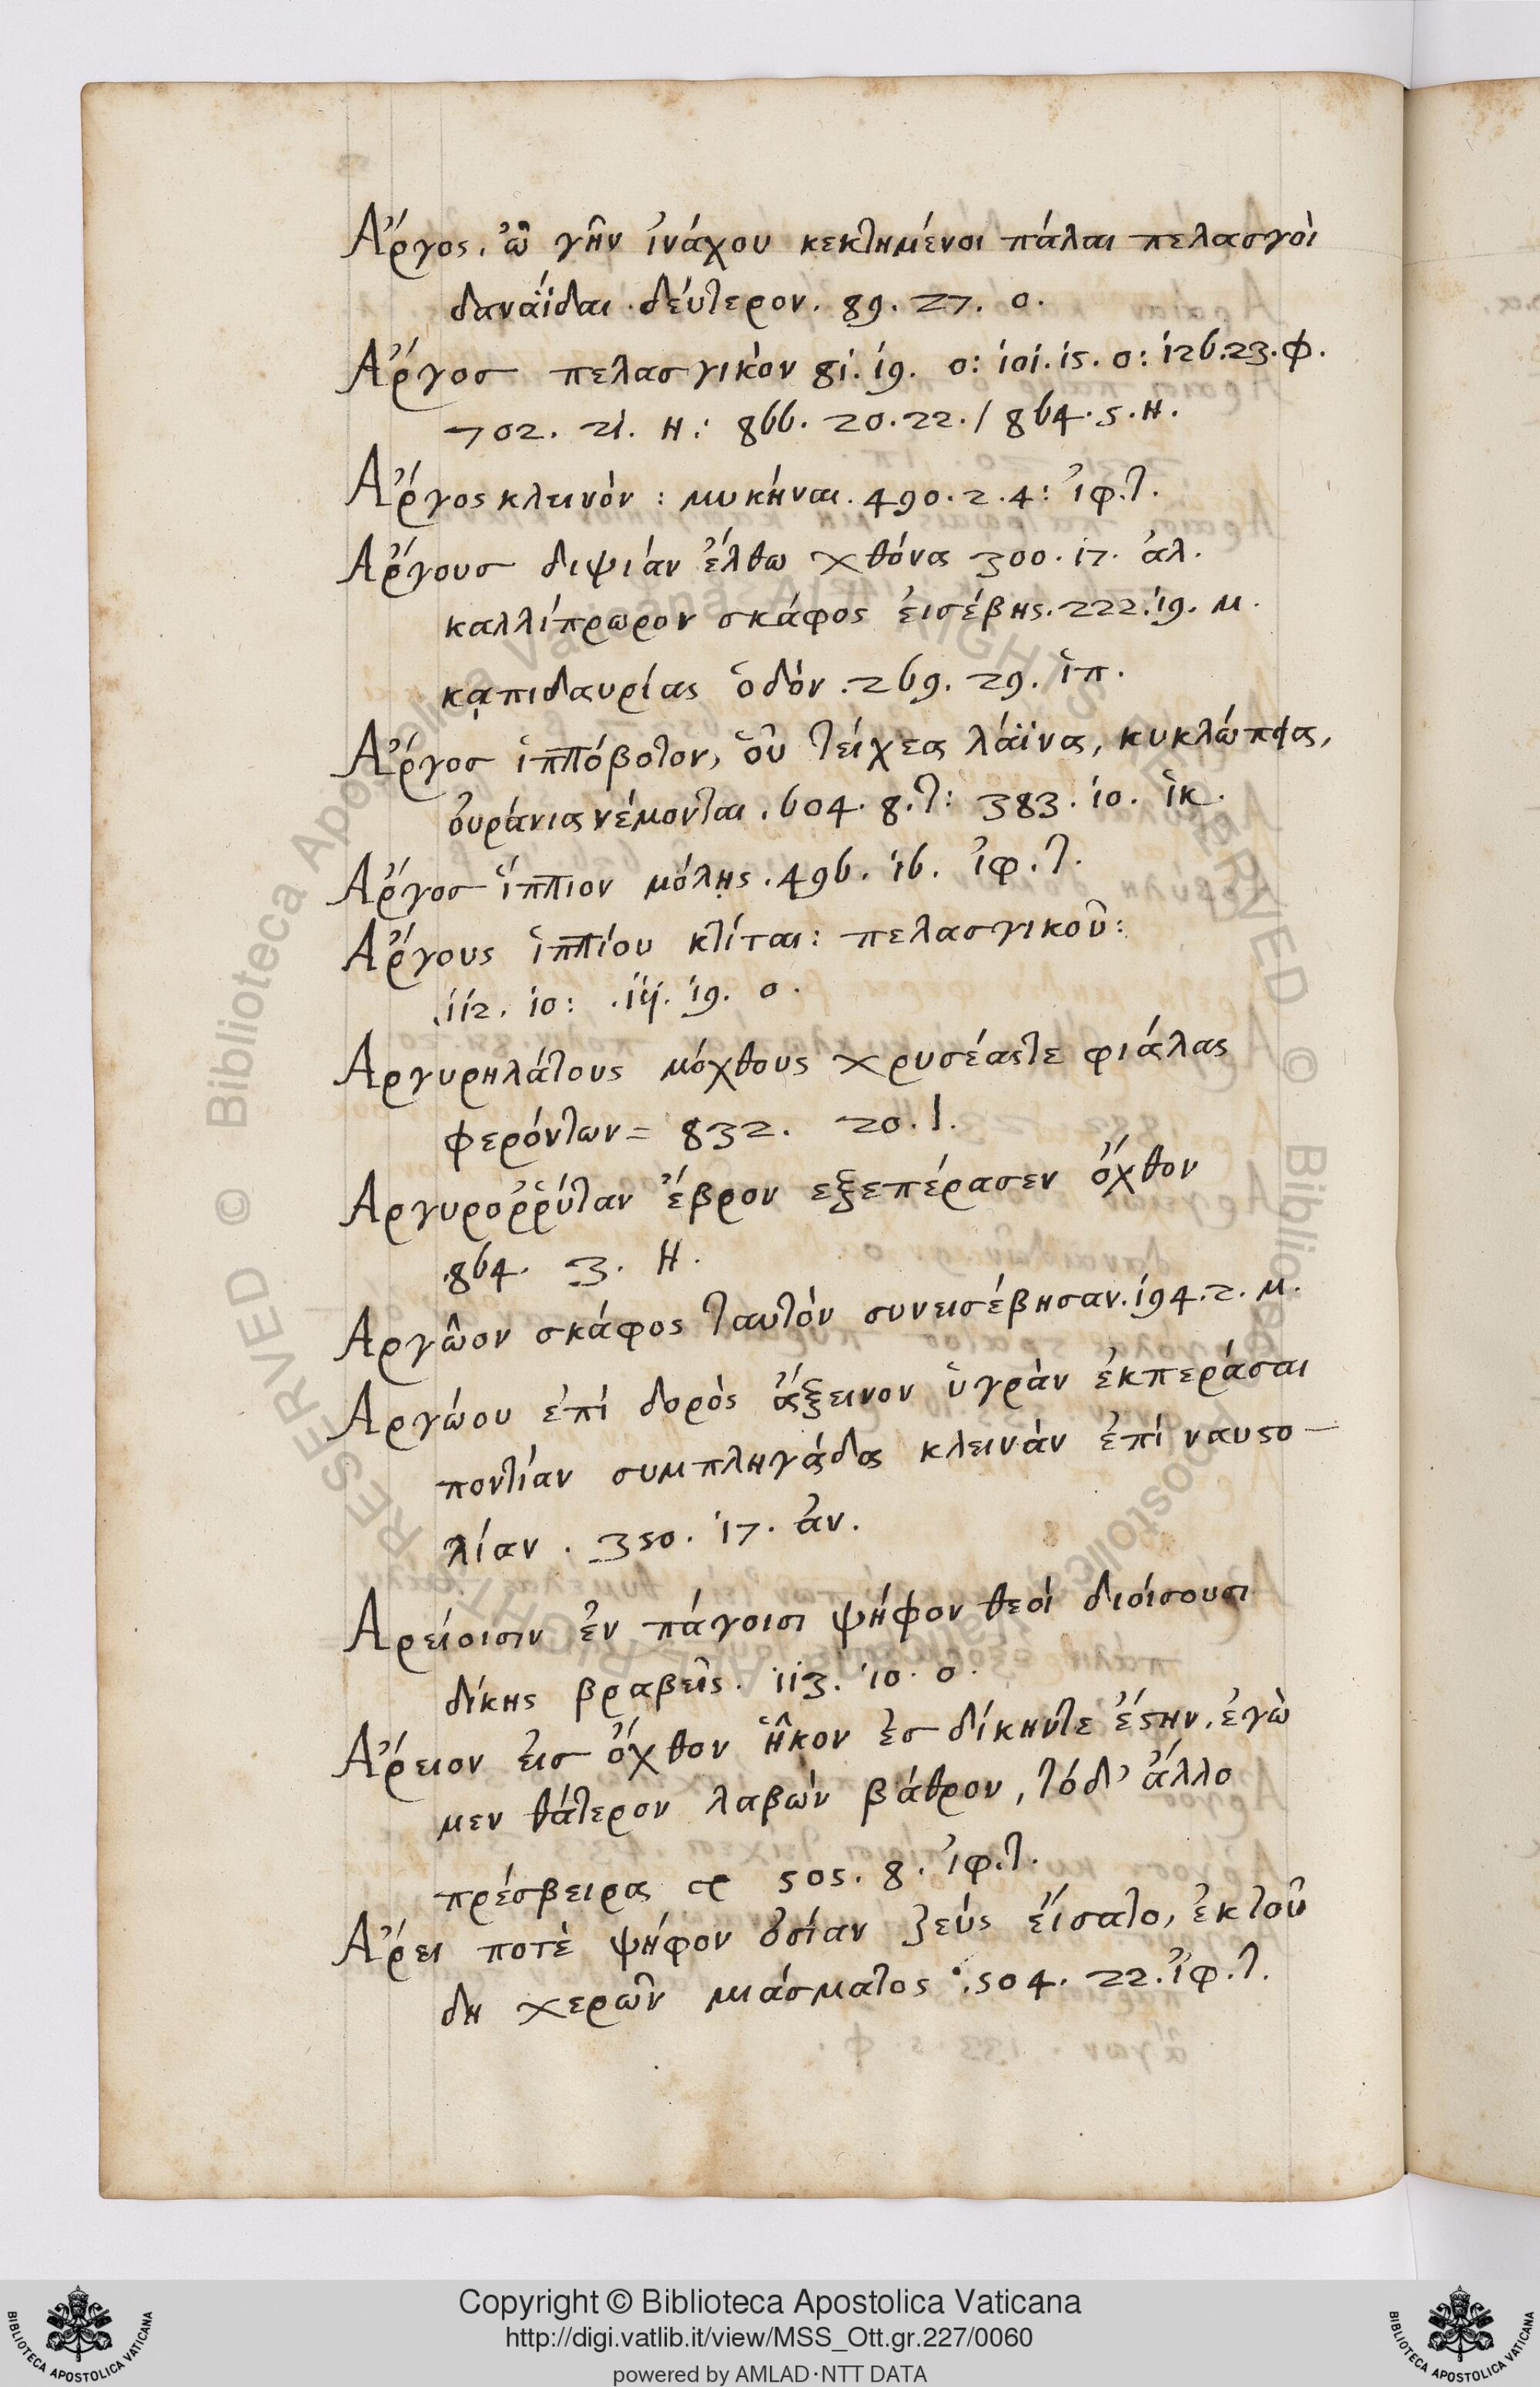 Ἄργος. ὦ γῆν ἰνάχου κεκτημένοι πάλαι πελασγοὶ
δαναΐδαι. δεύτερον. 89. 27. ο.
Ἄργοσ πελασγικὸν 81. 19. ο: 101. 15. ο: 126. 23. φ.
702. 21. η: 866. 20. 22. / 864. 5. η.
Ἄργος κλεινὸν: μυκήναι. 490. 2. 4: ἰφ. τ.
Ἄργουσ διψιάν ἔλθω χθόνα 300. 17. ἀλ.
καλλίπρωρον σκάφος ἐισέβης. 222. 19. μ.
κᾳπιδαυρίας ὁδόν. 269. 29. ἱπ.
Ἄργοσ ἱππόβοτον, ὁῦ τείχεα λάϊνα, κυκλώπἰα,
ὀυράνια νέμονται. 604. 8. τ: 383. 10. ἱκ.
Ἄργοσ ἵππιον μόλῃς. 496. 16. ἰφ. τ.
Ἄργους ἱππίου κτίται: πελασγικοῦ:
112. 10: . . 19. ο.
Αργυρηλάτους μόχθους χρυσέαςτε φιάλας
φερόντων = 832. 20. ι.
Αργυροῤῥύταν ἕβρον εξεπέρασεν ὄχθον
864. 3. η.
Αργῶον σκάφος ταυτὸν συνεισέβησαν. 194. 2. μ.
Αργώου ἐπί δορὸς ἄξεινον ὑγρὰν ἐκπεράσαι
ποντίαν συμπληγάδα κλεινὰν ἐπί ναυσο-
λίαν. 350. 17. ἀν.
Αρείοισιν ἐν πάγοισι ψήφον θεοί διοίσουσι
δίκης βραβεῖς. 113. 10. ο.
Ἄρειον ἐισ ὄχθον ἧκον ἐσ δίκηντε ἔστην. ἐγὼ
μεν θάτερον λαβὼν βάθρον, τόδ' ἄλλο
πρέσβειρα 505. 8. ἰφ. τ.
Ἄρει ποτὲ ψήφον ὁσίαν ζεύς ἕισατο, ἐκτοῦ
δη χερῶν μιάσματος. 504. 22. ἰφ. τ.
Copyright © Biblioteca Apostolica Vaticana
http://digi.vatlib.it/view/MSS_Ott.gr.227/0060
powered by AMLAD·NTT DATA